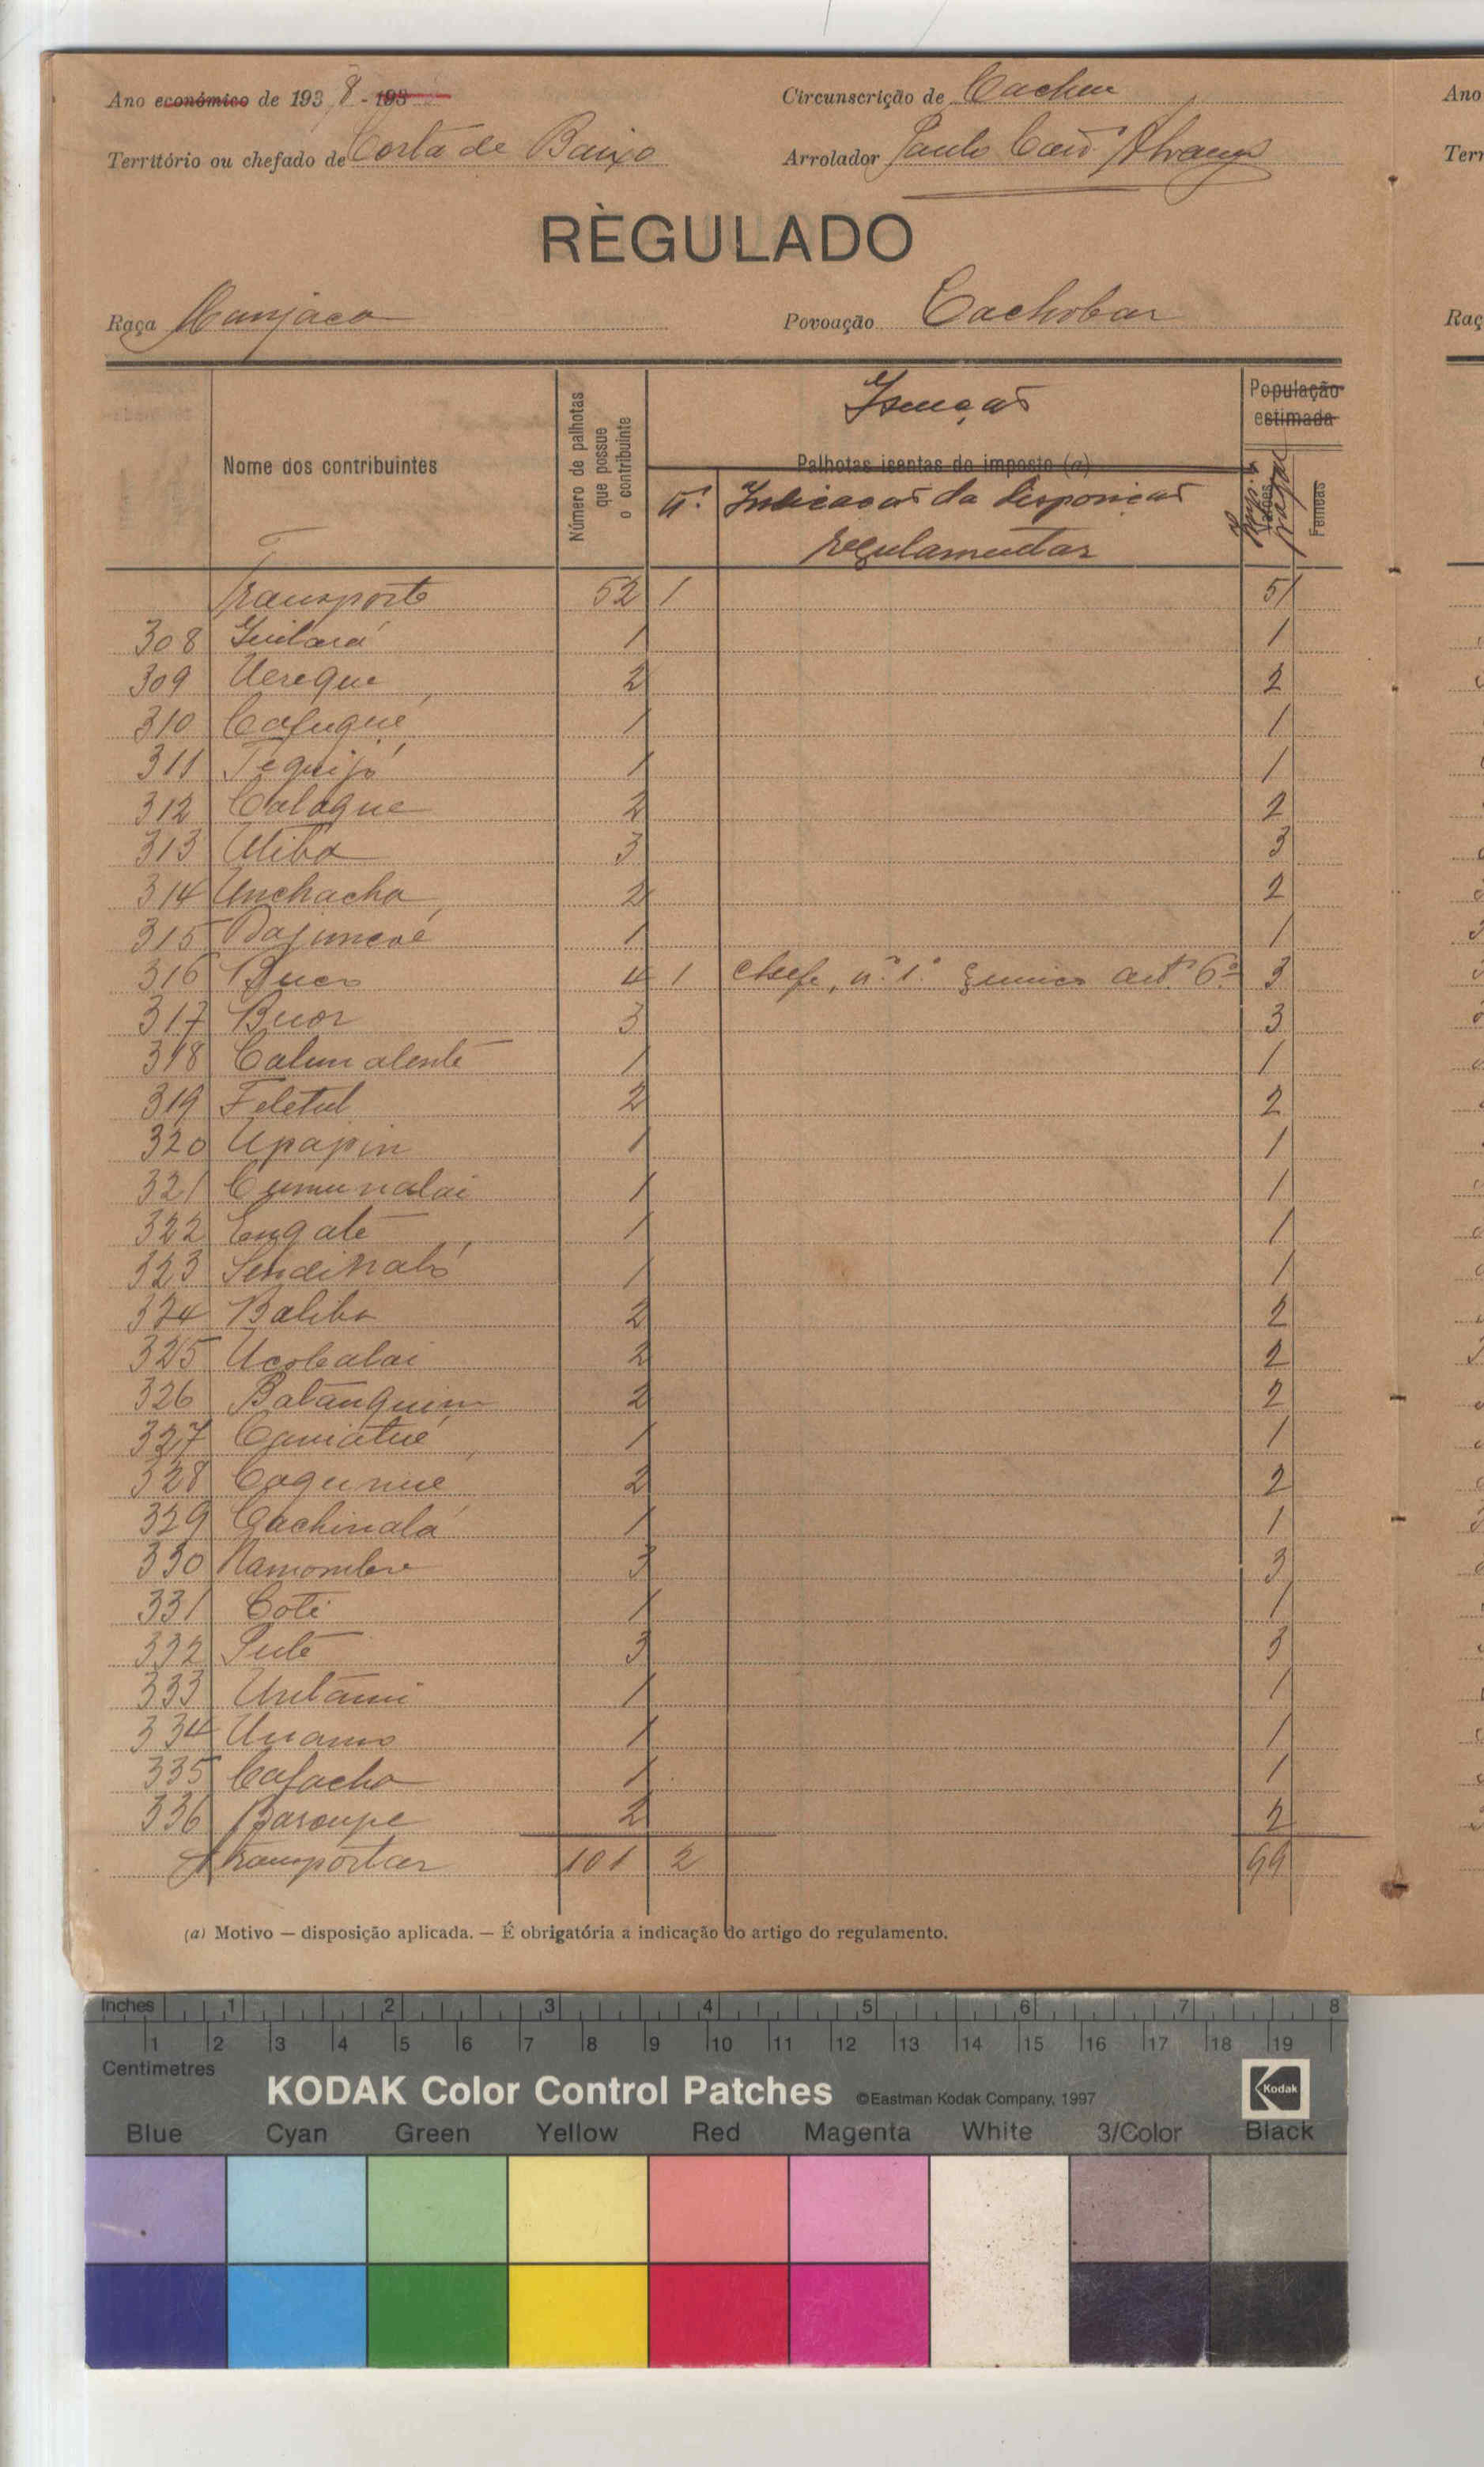 Ano económico de 1938-193
Circunscrição de Cacheu
Território ou chefado de Costa de Baixo
Arrolador Paulo
RÈGULADO
Raça Manjaca
Povoação Cachobar
Nome dos contribuintes
Número de palhotas que possue o contribuinte
Isenção
Palhotas isentas do imposto (a)
n.º Indicação da disposição regulamentar
População estimada
Femeas
Transporte 52 1 51
308 Guilará 1 1
309 Uereque 2 2
310 Cafuqué 1 1
311 Tequijó 1 1
312 Calaque 2 2
313 Atiba 3 3
314 Unchacha 2 2
315 1 1
316 Buco 4 1 Chefe, n.º 1.º art.º 6.º 3
317 Buor 3 3
318 Calumalenté 1 1
319 Feletul 2 2
320 Upapin 1 1
321 Cumunalai 1 1
322 Engate 1 1
323 1 1
324 Baliba 2 2
325 Ucobalai 2 2
326 Batanquim 2 2
327 Caniatué 1 1
328 Cagunué 2 2
329 Cachinalá 1 1
330 Namombre 3 3
331 Coti 1 1
332 Puté 3 3
333 Untami 1 1
334 Unamo 1 1
335 Cafacha 1 1
336 Baroupe 2 2
A transportar 101 2 99
(a) Motivo — disposição aplicada. — É obrigatória a indicação do artigo do regulamento.
Inches 1 2 3 4 5 6 7 8
1 2 3 4 5 6 7 8 9 10 11 12 13 14 15 16 17 18 19
Centimetres
KODAK Color Control Patches ©Eastman Kodak Company, 1997 Kodak
Blue Cyan Green Yellow Red Magenta White 3/Color Black
Ano
Terr
Raç